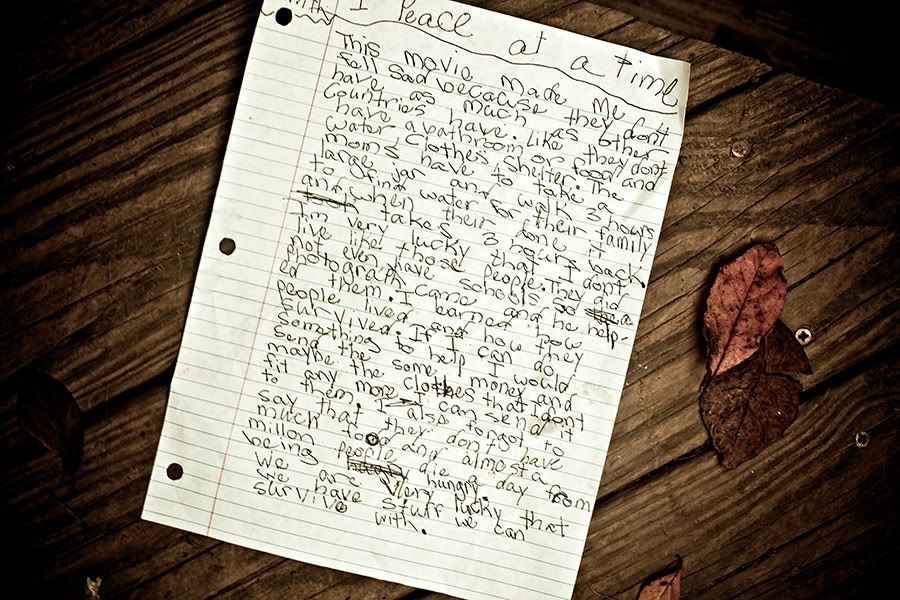 With 1 Peace at a Time
This movie made Me
fell sad because they don't
have as much as other
Countries have. Like they don't
have a bathroom or food and
water, clothes, shelter. The
moms have to take a
large jar and walk 3 hours
to find water for their family
and when their done it
takes 3 hours back.
I'm very lucky that I don't
live like those people. They did
not even have schools so a
photograph came and he help-
ed them. I learned how pow
people lived and how they
survived. If I can do
something to help I would
send the some money and
maybe the clothes that I don't
fit any more I can send it
to them. I also forgot to
say that they don't have
much food and almost a
millon people die day from
being hungry.
We are very lucky that
we have stuff we can
survive with.